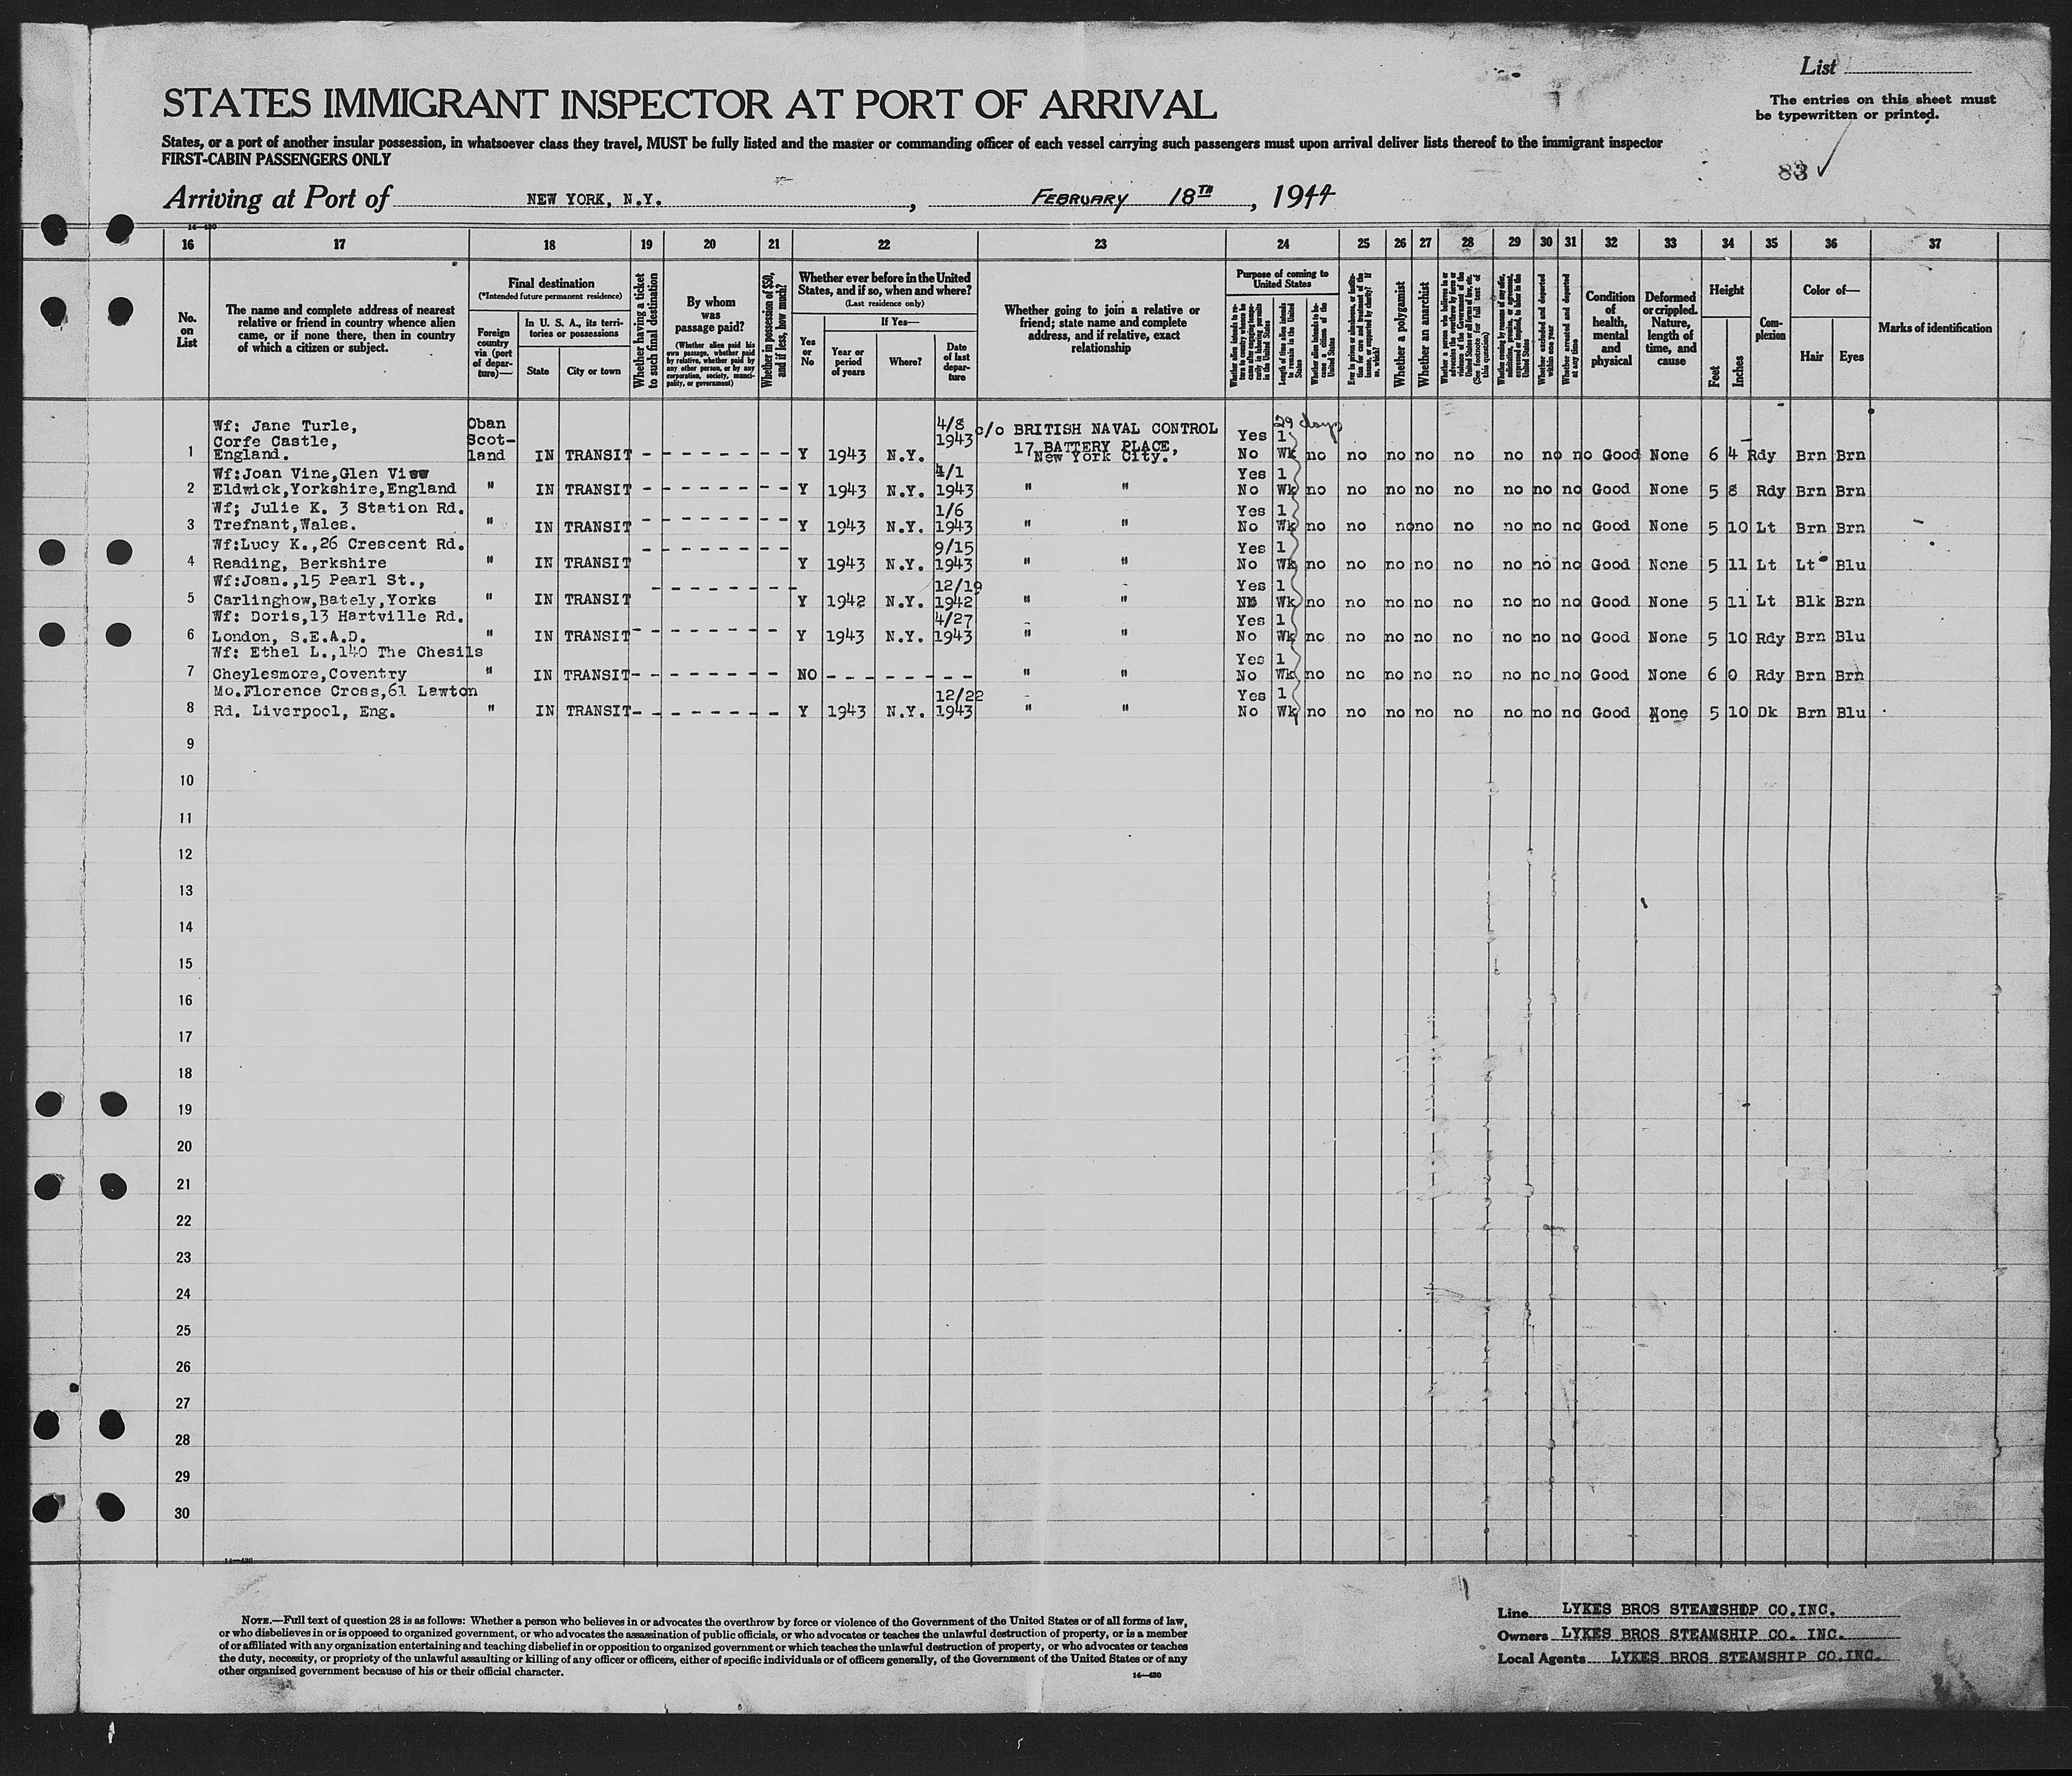 List
STATES IMMIGRANT INSPECTOR AT PORT OF ARRIVAL
The entries on this sheet must
be typewritten or printed.
States, or a port of another insular possession, in whatsoever class they travel, MUST be fully listed and the master or commanding officer of each vessel carrying such passengers must upon arrival deliver lists thereof to the immigrant inspector
FIRST-CABIN PASSENGERS ONLY
83 ✓
Arriving at Port of NEW YORK, N.Y., FEBRUARY 18TH, 1944
14—430
16 17 18 19 20 21 22 23 24 25 26 27 28 29 30 31 32 33 34 35 36 37
No. on List
The name and complete address of nearest
relative or friend in country whence alien
came, or if none there, then in country
of which a citizen or subject.
Final destination
(*Intended future permanent residence)
Foreign country via (port of departure)—
In U. S. A., its territories or possessions
State
City or town
Whether having a ticket to such final destination
By whom was passage paid?
(Whether alien paid his own passage, whether paid by relative, whether paid by any other person, or by any corporation, society, municipality, or government)
Whether in possession of $50, and if less, how much?
Whether ever before in the United
States, and if so, when and where?
(Last residence only)
Yes or No
If Yes—
Year or period of years
Where?
Date of last departure
Whether going to join a relative or
friend; state name and complete
address, and if relative, exact
relationship
Purpose of coming to United States
Length of time alien intends to remain in the United States
Whether alien intends to become a citizen of the United States
Whether a polygamist
Whether an anarchist
Whether excluded and deported within one year
Whether arrested and deported at any time
Condition of health, mental and physical
Deformed or crippled. Nature, length of time, and cause
Height
Feet
Inches
Complexion
Color of—
Hair
Eyes
Marks of identification
29 days
1 Wf: Jane Turle, Corfe Castle, England. Oban Scotland IN TRANSIT - - - - - - - - - Y 1943 N.Y. 4/8 1943 c/o BRITISH NAVAL CONTROL 17 BATTERY PLACE, New York City. Yes No 1 Wk no no no no no no no no Good None 6 4 Rdy Brn Brn
2 Wf:Joan Vine,Glen View Eldwick,Yorkshire,England " IN TRANSIT - - - - - - - - - Y 1943 N.Y. 4/1 1943 " " Yes No 1 Wk no no no no no no no no Good None 5 8 Rdy Brn Brn
3 Wf; Julie K. 3 Station Rd. Trefnant,Wales. " IN TRANSIT - - - - - - - - - Y 1943 N.Y. 1/6 1943 " " Yes No 1 Wk no no no no no no no no Good None 5 10 Lt Brn Brn
4 Wf:Lucy K.,26 Crescent Rd. Reading, Berkshire " IN TRANSIT - - - - - - - - - Y 1943 N.Y. 9/15 1943 " " Yes No 1 Wk no no no no no no no no Good None 5 11 Lt Lt Blu
5 Wf:Joan.,15 Pearl St., Carlinghow,Bately,Yorks " IN TRANSIT - - - - - - - - - Y 1942 N.Y. 12/19 1942 " " Yes No 1 Wk no no no no no no no no Good None 5 11 Lt Blk Brn
6 Wf: Doris,13 Hartville Rd. London, S.E.A.D. " IN TRANSIT - - - - - - - - - Y 1943 N.Y. 4/27 1943 " " Yes No 1 Wk no no no no no no no no Good None 5 10 Rdy Brn Blu
7 Wf: Ethel L.,140 The Chesils Cheylesmore,Coventry " IN TRANSIT - - - - - - - - - NO - - - - - - - - " " Yes No 1 Wk no no no no no no no no Good None 6 0 Rdy Brn Brn
8 Mo.Florence Cross,61 Lawton Rd. Liverpool, Eng. " IN TRANSIT - - - - - - - - - Y 1943 N.Y. 12/22 1943 " " Yes No 1 Wk no no no no no no no no Good None 5 10 Dk Brn Blu
9
10
11
12
13
14
15
16
17
18
19
20
21
22
23
24
25
26
27
28
29
30
14—430
NOTE.—Full text of question 28 is as follows: Whether a person who believes in or advocates the overthrow by force or violence of the Government of the United States or of all forms of law,
or who disbelieves in or is opposed to organized government, or who advocates the assassination of public officials, or who advocates or teaches the unlawful destruction of property, or is a member
of or affiliated with any organization entertaining and teaching disbelief in or opposition to organized government or which teaches the unlawful destruction of property, or who advocates or teaches
the duty, necessity, or propriety of the unlawful assaulting or killing of any officer or officers, either of specific individuals or of officers generally, of the Government of the United States or of any
other organized government because of his or their official character.
14—430
Line LYKES BROS STEAMSHIP CO.INC.
Owners LYKES BROS STEAMSHIP CO. INC.
Local Agents LYKES BROS STEAMSHIP CO.INC.